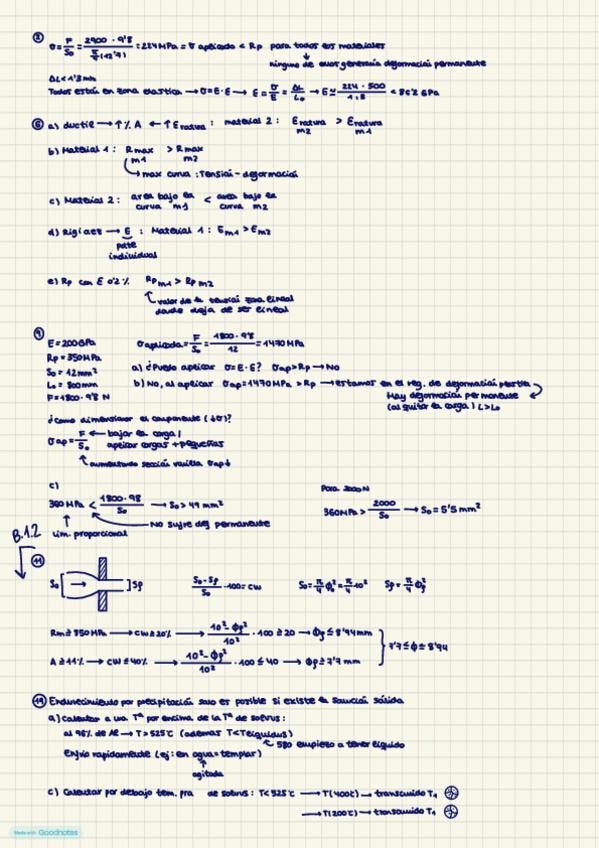 ② σ = F/S₀ = 2900 · 9'8 / π/4 (12'7²) = 224 MPa = σ aplicado < Rp para todos los materiales
ninguno de ellos generaría deformación permanente
ΔL < 1'3 mm
Todos están en zona elástica → σ = E · ε → ε = σ/E = ΔL/L₀ → E ≥ 224 · 500 / 1,3 < 86'2 GPa
⑥ a) ductil → ↑ % A ← ↑ ε rotura : material 2 : ε rotura m2 > ε rotura m1
b) Material 1 : Rmax m1 > Rmax m2
max curva : Tensión - deformación
c) Material 2 : area bajo la curva m1 < area bajo la curva m2
d) Rigidez → E : Material 1 : Em1 > Em2
pdte
individual
e) Rp con ε 0'2 % Rp m1 > Rp m2
valor de la tensión zona lineal
donde deja de ser lineal
⑨
E = 200 GPa σ aplicada = F/S₀ = 1800 · 9'8 / 12 = 1470 MPa
Rp = 350 MPa
S₀ = 12 mm² a) ¿Puedo aplicar σ = E · ε? σap > Rp → No
L₀ = 800 mm b) No, al aplicar σap = 1470 MPa > Rp → estamos en el reg. de deformación plástica
F = 1800 · 9'8 N Hay deformación permanente
(al quitar la carga) L > L₀
¿Como dimensionar el componente (↓σ)?
σap = F/S₀ ← bajar la carga /
aplicar cargas + pequeñas
aumentando sección varilla σap ↓
c) Para 2000 N
360 MPa < 1800 · 98 / S₀ → S₀ > 49 mm² 360 MPa > 2000 / S₀ → S₀ = 5'5 mm²
No sufre def permanente
lim. proporcional
B.1.2
⑪
S₀ → Sf S₀ - Sf / S₀ · 100 = CW S₀ = π/4 ϕ₀² = π/4 10² Sf = π/4 ϕf²
Rm ≥ 350 MPa → CW ≥ 20% → 10² - ϕf² / 10² · 100 ≥ 20 → ϕf ≤ 8'94 mm
A ≥ 11% → CW ≤ 40% → 10² - ϕf² / 10² · 100 ≤ 40 → ϕf ≥ 7'7 mm
7'7 ≤ ϕ ≤ 8'94
⑲ Endurecimiento por precipitación solo es posible si existe la solución sólida
a) Calentar a una Tª por encima de la Tª de solvus :
al 96% de Al → T > 525°C (ademas T < T liquidus)
580 empiezo a tener líquido
Enfrio rapidamente (ej: en agua = templar)
agitada
c) Calentar por debajo tem. pra de solvus : T < 525°C → T (400°C) → transcurrido T₁
→ T (200°C) → transcurrido T₁
Made with Goodnotes